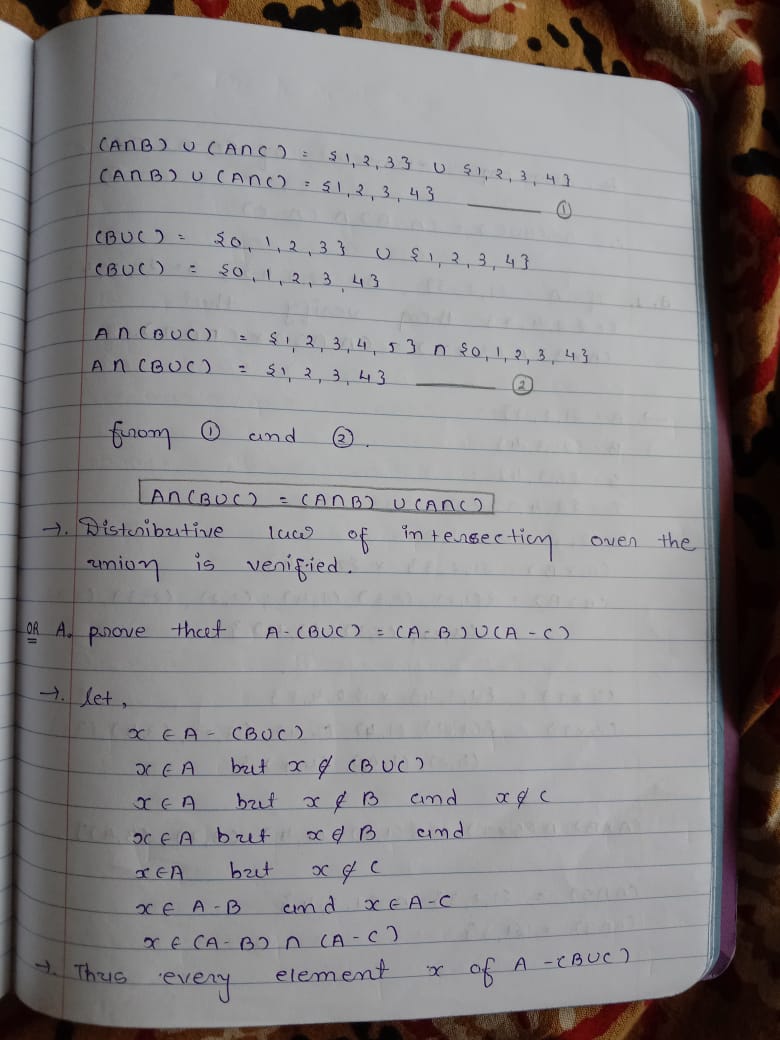 (A∩B) ∪ (A∩C) = {1, 2, 3} ∪ {1, 2, 3, 4}
(A∩B) ∪ (A∩C) = {1, 2, 3, 4} ——— ①
(B∪C) = {0, 1, 2, 3} ∪ {1, 2, 3, 4}
(B∪C) = {0, 1, 2, 3, 4}
A∩(B∪C) = {1, 2, 3, 4, 5} ∩ {0, 1, 2, 3, 4}
A∩(B∪C) = {1, 2, 3, 4} ——— ②
from ① and ②.
A∩(B∪C) = (A∩B) ∪ (A∩C)
→. Distributive law of intersection over the
union is verified.
OR A. prove that A-(B∪C) = (A-B)∪(A-C)
→. let,
x ∈ A - (B∪C)
x ∈ A but x ∉ (B∪C)
x ∈ A but x ∉ B and x ∉ C
x ∈ A but x ∉ B and
x ∈ A but x ∉ C
x ∈ A-B and x ∈ A-C
x ∈ (A-B) ∩ (A-C)
→. Thus every element x of A-(B∪C)